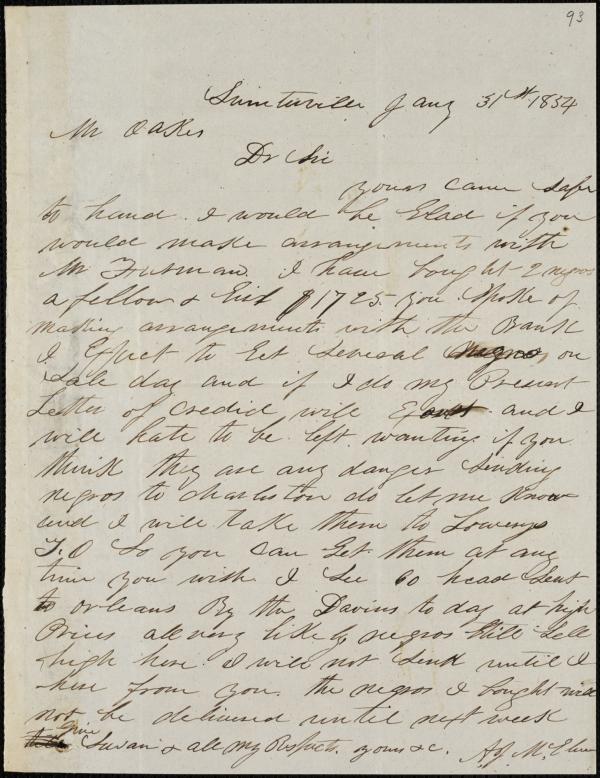 93
Sumterville Jany 31st 1854
Mr Oakes
Dr Sir
yours came safe
to hand. I would be glad if you
would make arrangements with
Mr Furman. I have bought 2 negros
a fellow & Girl $1725. you spoke of
making arrangements with the Bank
I Expect to Get several negros, on
Sale day and if I do my Present
Letter of credid will and I
will hate to be left wanting if you
think they are any danger sending
negros to charleston do let me know
and I will take them to Lowerys
T.O So you can Get them at any
time you wish. I See 60 head Sent
to orleans By the Davins to day at high
Prices all very likely negros Still Sell
high here. I will not send until I
hear from you. the negros I bought will
not be delivered until next week
give Susan & all my Respects. yours &c. A J McElveen